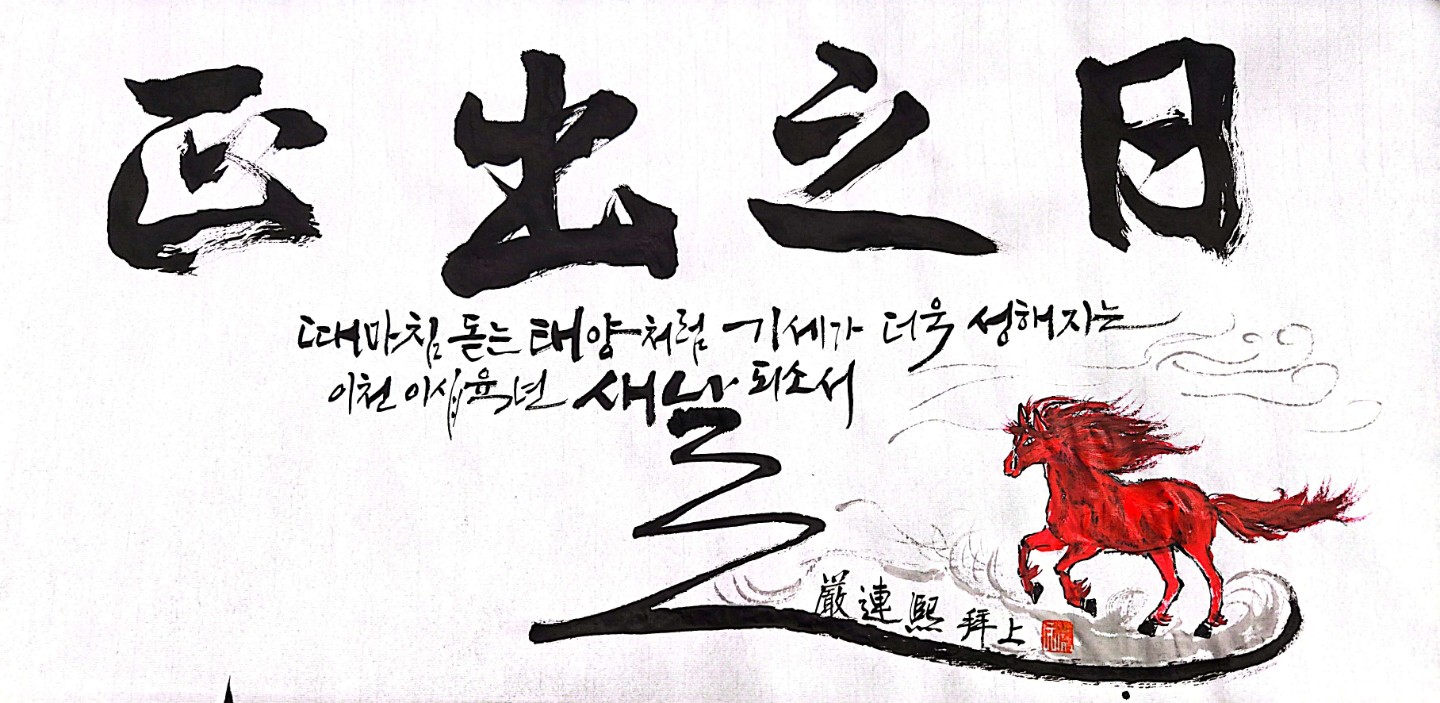 正出之日
때마침 돋는 태양처럼 기세가 더욱 성해지는
이천 이십육년 새날 되소서
嚴連熙 拜上